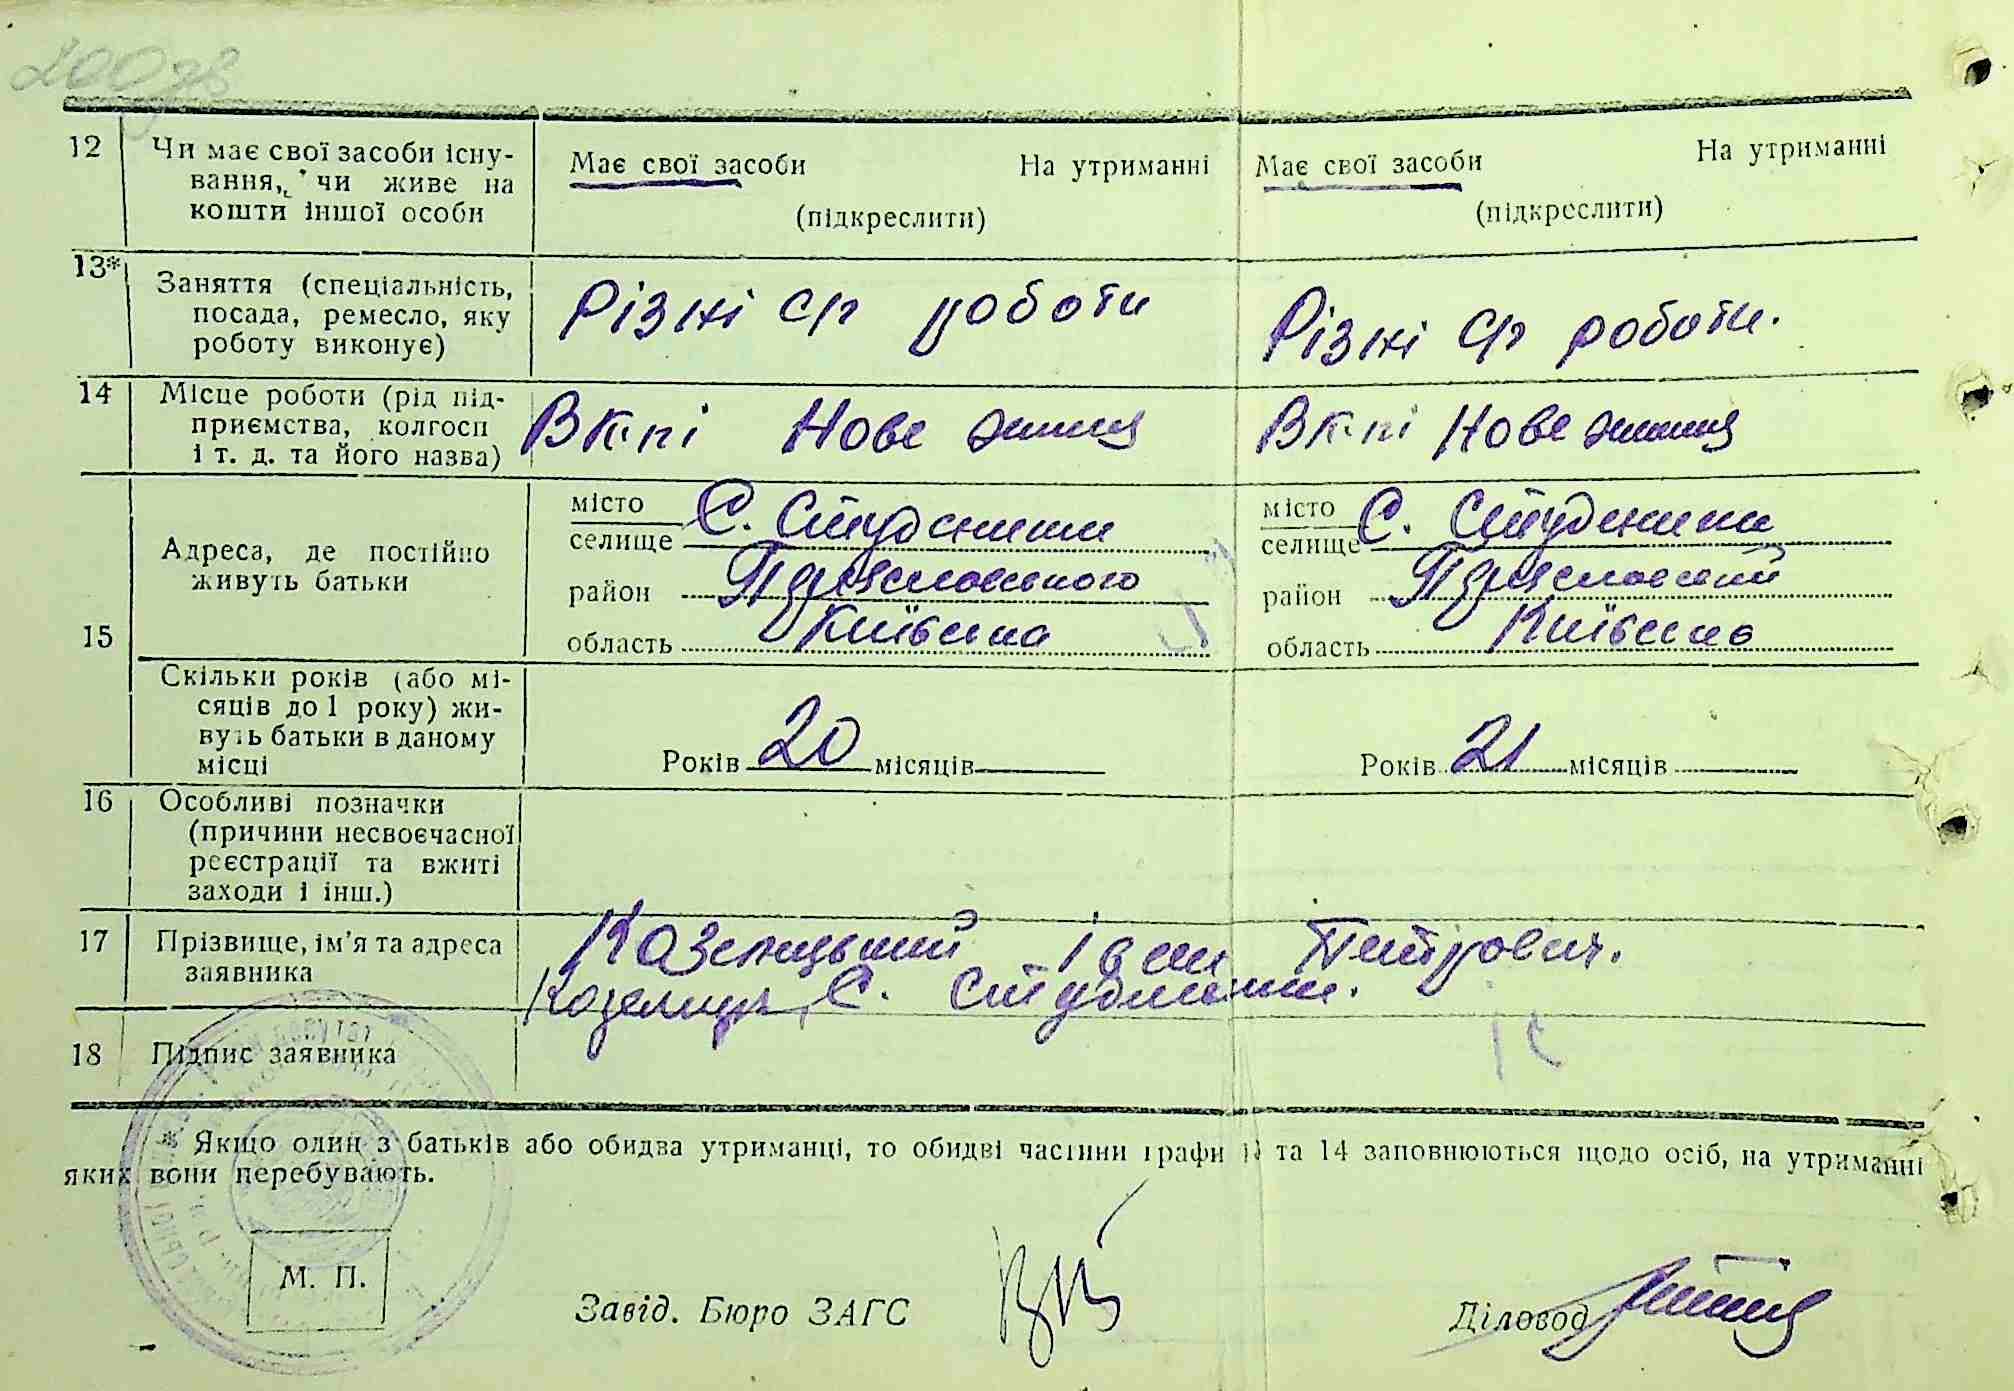 12 Чи має свої засоби існу-
вання, чи живе на
кошти іншої особи
Має свої засоби На утриманні Має свої засоби На утриманні
(підкреслити) (підкреслити)
13* Заняття (спеціальність,
посада, ремесло, яку
роботу виконує)
Різні с/г роботи Різні с/г роботи.
14 Місце роботи (рід під-
приємства, колгосп
і т. д. та його назва)
В к-пі Нове життя В к-пі Нове життя
15 Адреса, де постійно
живуть батьки
місто
селище С. Студеники
район Переяславського
область Київська
місто
селище С. Студеники
район Переяславський
область Київська
Скільки років (або мі-
сяців до 1 року) жи-
вуть батьки в даному
місці
Років 20 місяців Років 21 місяців
16 Особливі позначки
(причини несвоєчасної
реєстрації та вжиті
заходи і інш.)
17 Прізвище, ім'я та адреса
заявника
Іван Петрович.
С. Студеники.
18 Підпис заявника
* Якщо один з батьків або обидва утриманці, то обидві частини графи 13 та 14 заповнюються щодо осіб, на утриманні
яких вони перебувають.
М. П.
Завід. Бюро ЗАГС Діловод